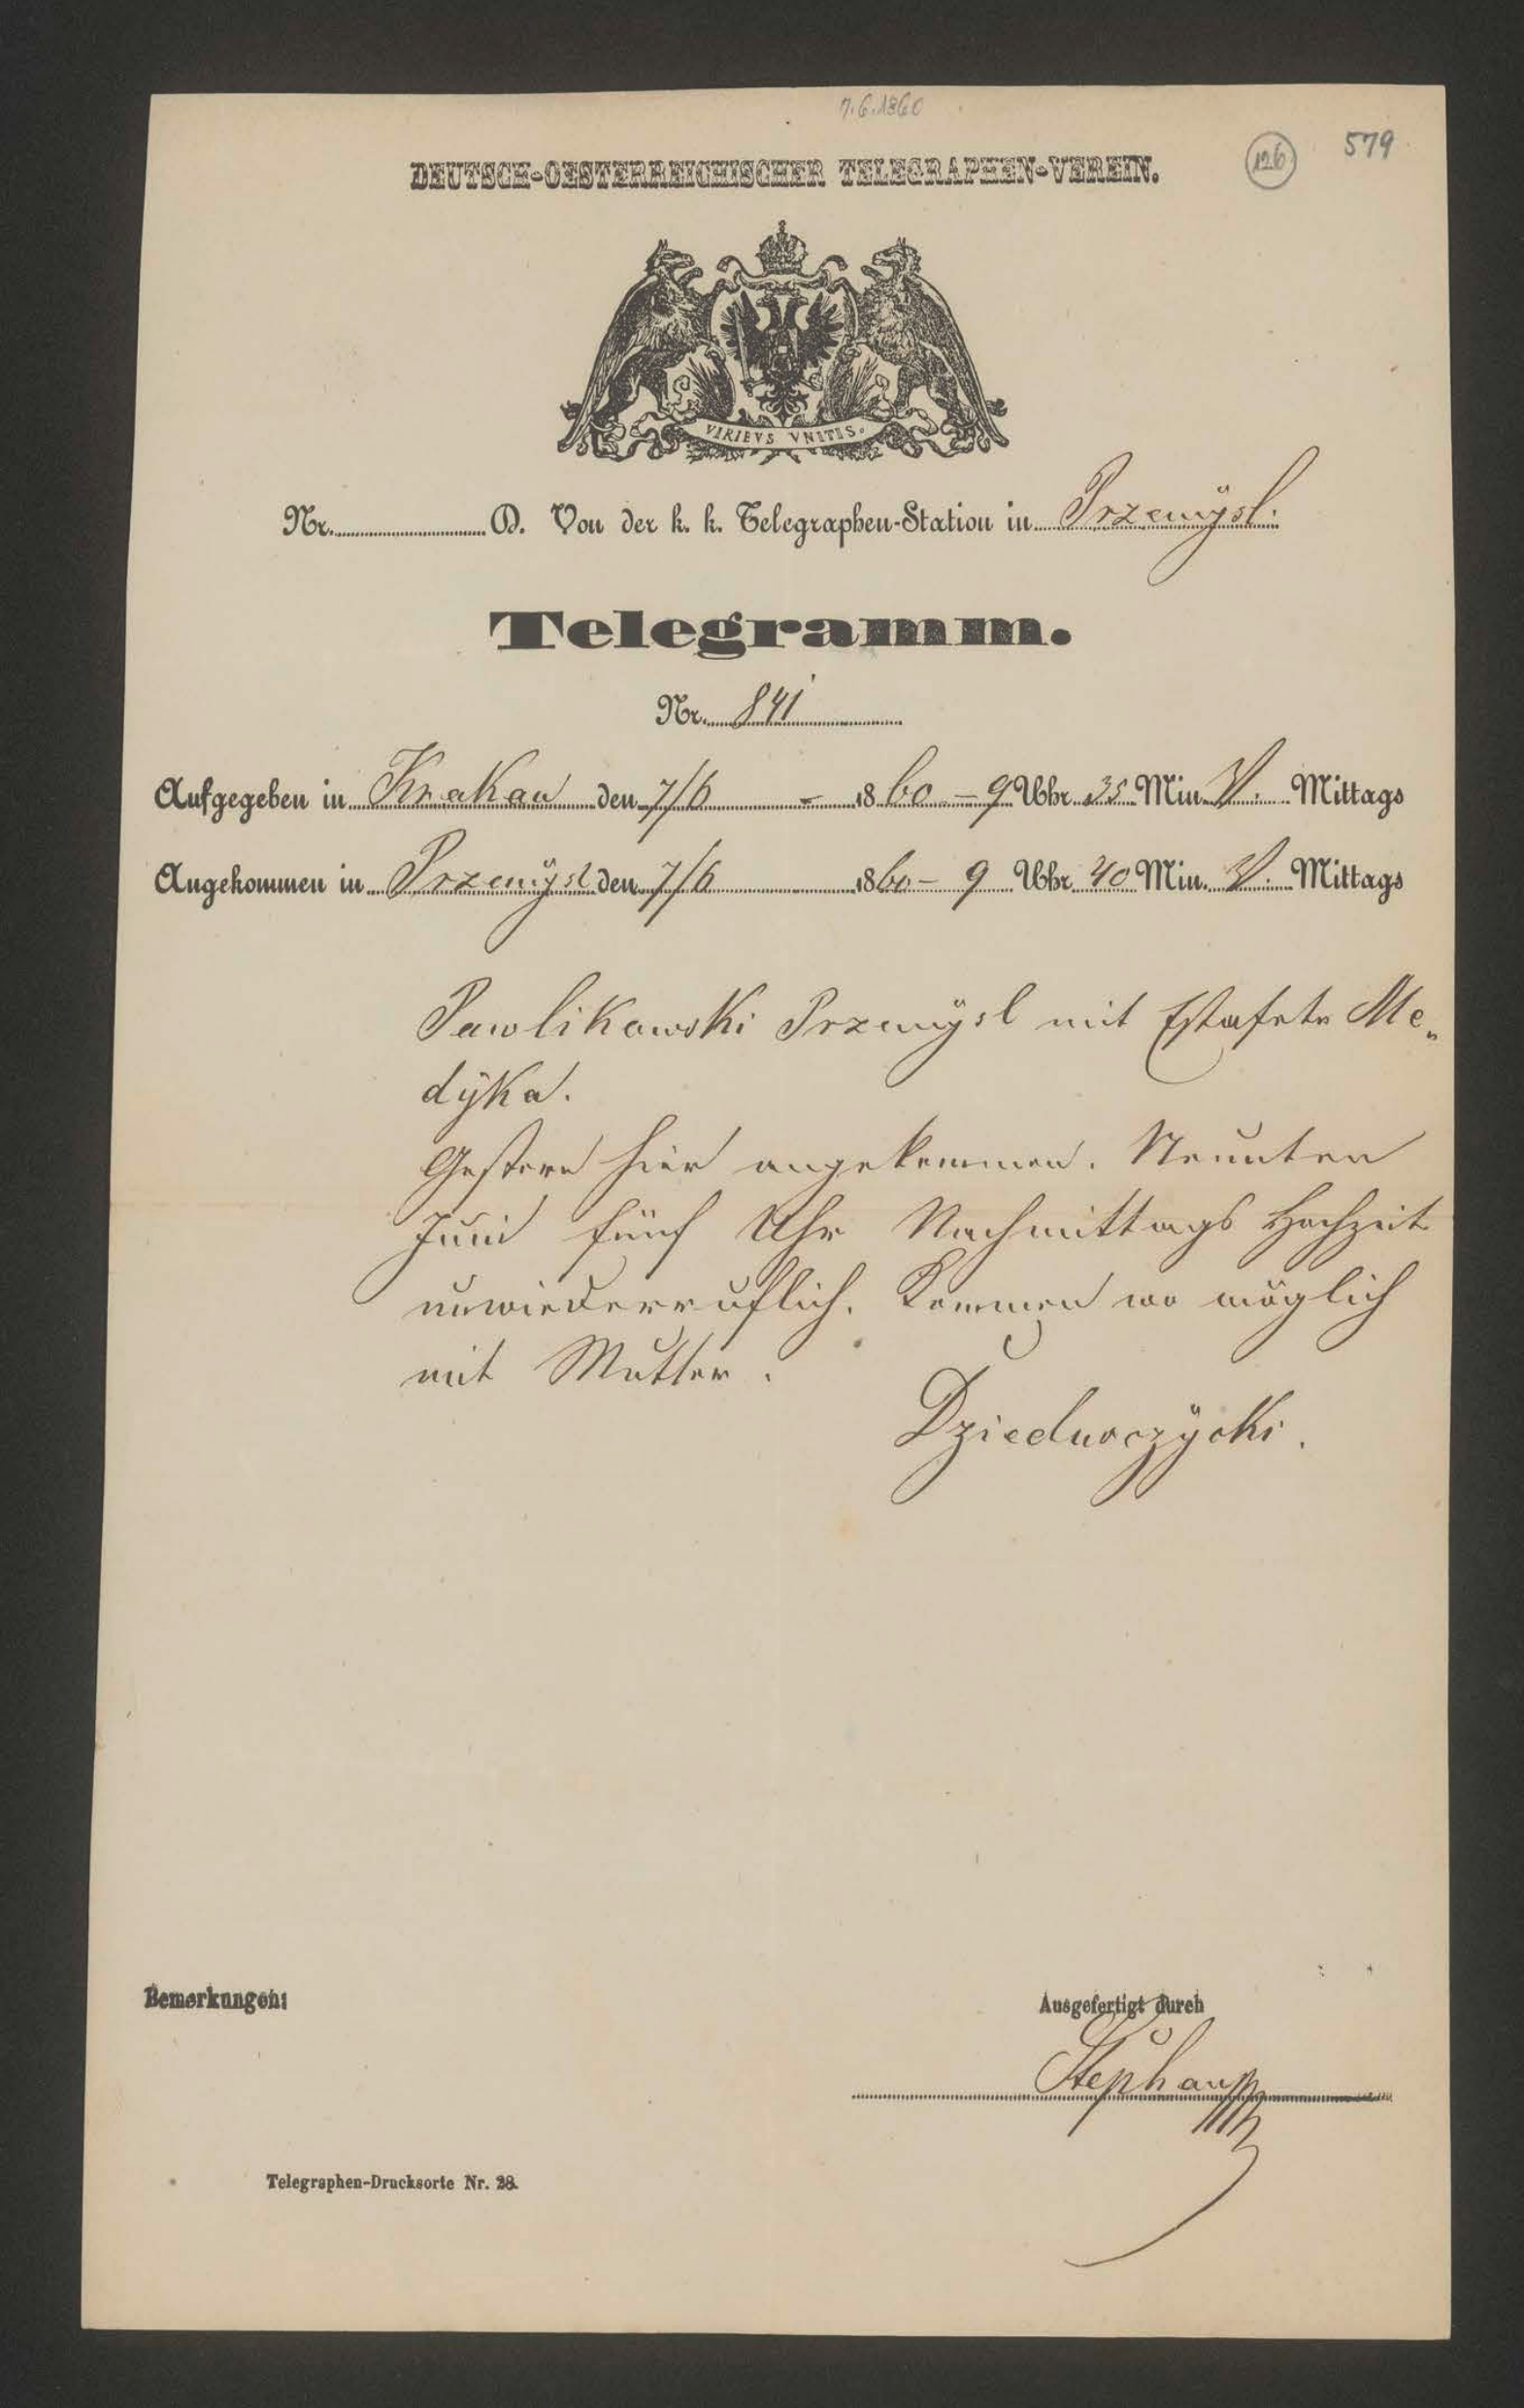 7.6.1860
126
579
DEUTSCH-OESTERREICHISCHER TELEGRAPHEN-VEREIN.
VIRIBVS VNITIS.
Nr. D. Von der k. k. Telegraphen-Station in Przemÿsl.
Telegramm.
Nr. 841
Aufgegeben in Krakau den 7/6 - 1860 - 9 Uhr 35 Min. V. Mittags
Angekommen in Przemÿsl den 7/6 1860 - 9 Uhr 40 Min. V. Mittags
Pawlikowski Przemÿsl mit Estafete Me„
dÿka.
Gestern hier angekommen. Neunten
Juni fünf Uhr Nachmittags Hochzeit
unwiederruflich. Kommen wo möglich
mit Mutter.
Dzieduszÿcki.
Bemerkungen:
Ausgefertigt durch
Stephan
Telegraphen-Drucksorte Nr. 28.